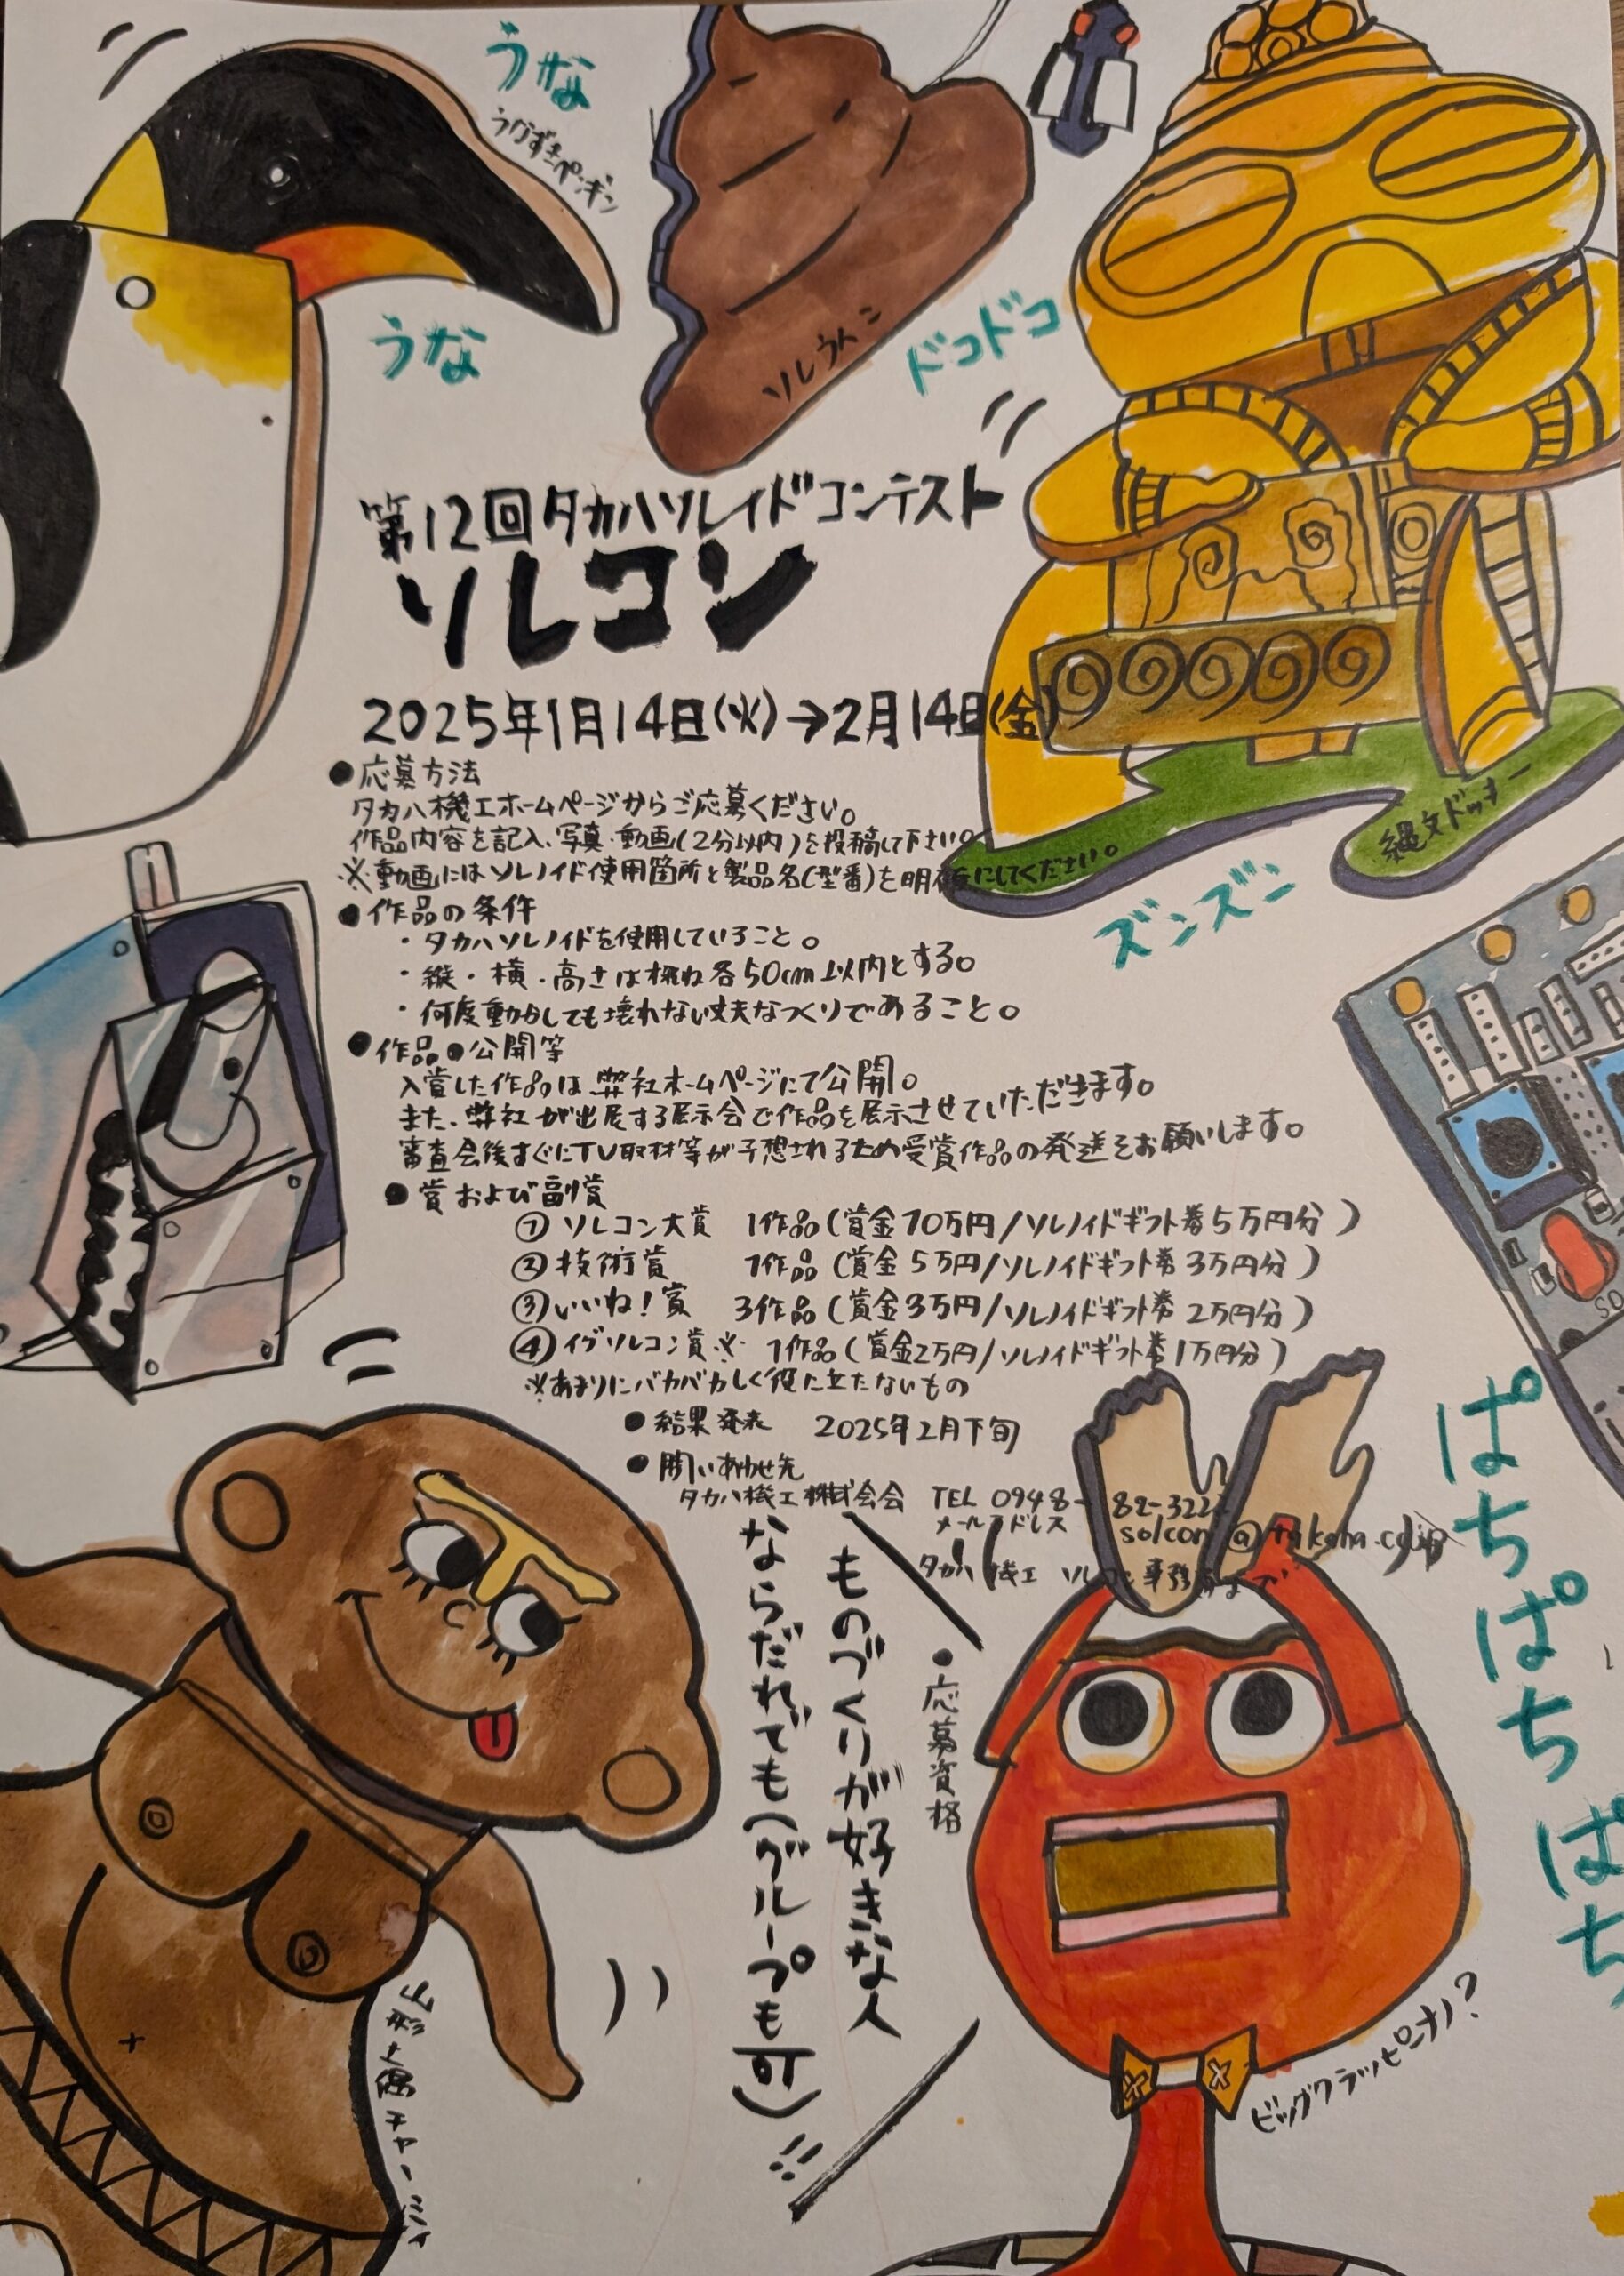 うな
うなずきペンギン
うな
ソレうんこ
ドコドコ
第12回タカハソレノイドコンテスト
ソレコン
2025年1月14日(火)→2月14日(金)
●応募方法
タカハ機工ホームページからご応募ください。
作品内容を記入、写真・動画(2分以内)を投稿して下さい。
※動画にはソレノイド使用箇所と製品名(型番)を明確にしてください。
縄文ドッキー
ズンズン
●作品の条件
・タカハソレノイドを使用していること。
・縦・横・高さは概ね各50cm以内とする。
・何度動かしても壊れない丈夫なつくりであること。
●作品の公開等
入賞した作品は弊社ホームページにて公開。
また、弊社が出展する展示会で作品を展示させていただきます。
審査会後すぐにTV取材等が予想されるため受賞作品の発送をお願いします。
●賞および副賞
①ソレコン大賞 1作品(賞金10万円/ソレノイドギフト券5万円分)
②技術賞 1作品(賞金5万円/ソレノイドギフト券3万円分)
③いいね!賞 3作品(賞金3万円/ソレノイドギフト券2万円分)
④イグソレコン賞※ 1作品(賞金2万円/ソレノイドギフト券1万円分)
※あまりにバカバカしく役に立たないもの
●結果発表 2025年2月下旬
●問いあわせ先
タカハ機工株式会会 TEL 0948-82-322
メールアドレス solcon@takaha.co.jp
タカハ機工 ソレコン事務局まで
ぱちぱちぱち
●応募資格
ものづくりが好きな人
ならだれでも(グループも可)
山形土偶チャーミー
ビッグクラッピーナノ?